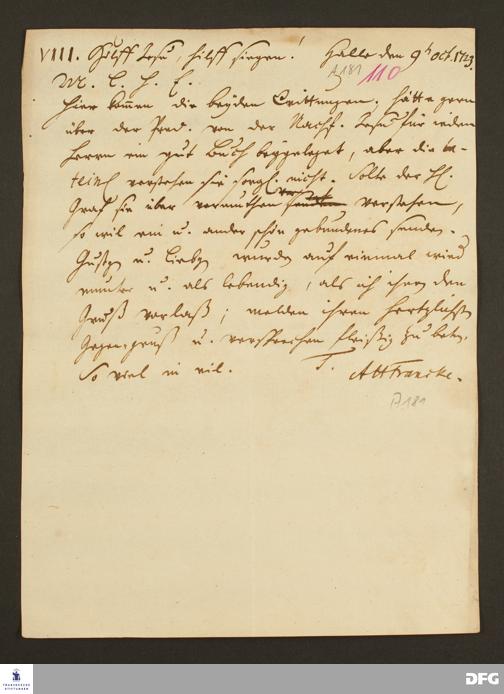 VIII. Hilff Jesu, hilff siegen! Halle den 9 Oct. 1723.
A181 110
M. l. H. E.
Hier kommen die beyden Quittungen; hätte gern
über der Pred. von der Nachf. Jesu für jeden
Herrn ein gut Buch beygeleget, aber die La-
tein verstehen sie nicht. Solte der H.
Graf sie über vermuthen verstehen,
so wil ein u. ander schön gebundenes senden.
u. wurden auf einmal wied
munter u. als lebendig, als ich ihnen den
Gruß verlaß; melden ihren hertzlichsten
Gegengruß u. versprechen fleißig zu beten.
So viel in eil. T. AHFrancke.
A181
FRANCKESCHE
STIFTUNGEN
DFG